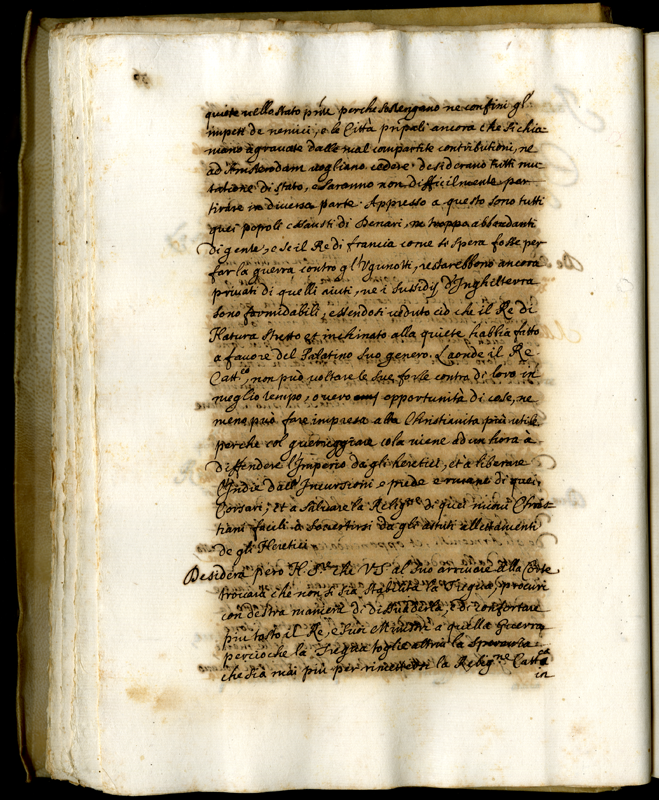 quiete nello stato p̃nte perche sostengano ne confini gl'
impeti de nemici, e le Città pñpali ancora che si chia-
mano agravate dalle mal compartite contributioni, ne
ad Amsterodam vogliano cedere desiderano tutti mu-
tatione di stato, e saranno non difficilmente par-
tirare in diversa parte. Appresso a questo sono tutti
quei popoli essausti di Denari, ne troppo abbondanti
di gente, e se il Re di francia come si spera fosse per
far la guerra contro gl'Ugunotti, restarebbono ancora
privati di quelli aiuti, ne i sussidij d'Inghilterra
sono formidabili, essendosi veduto ciò che il Re di
Natura stretto et inchinato alla quiete habbia fatto
a favore del Palatino suo genero. Laonde il Re
Catt.co non può voltare le sue forse contra di loro in
meglio tempo, overo opportunità di cose, ne
meno può fare impresa alla Christianità più utile
perche col guerreggiare cola viene ad un hora à
diffendere l'Imperio da gli heretici, et à liberare
l'Indie dall'Incursioni e prede e rovine di quei
Corsari; et a salvare la Relig.ne di quei nuovi Chris-
tiani facili à sovertirsi da gli astuti allettamenti
de gli Heretici
Desidera però N. S.re che VS al suo arrivare alla Corte
trovara che non si sia stabilita la Tregua, procuri
con destra maniera di dissuaderla, e di confortare
più tosto il Re, e suoi Ministri a quella Guerra
percioche la Tregua toglie affatto la speranza
che sia mai più per rimettersi la Relig.ne Catt.ca
in